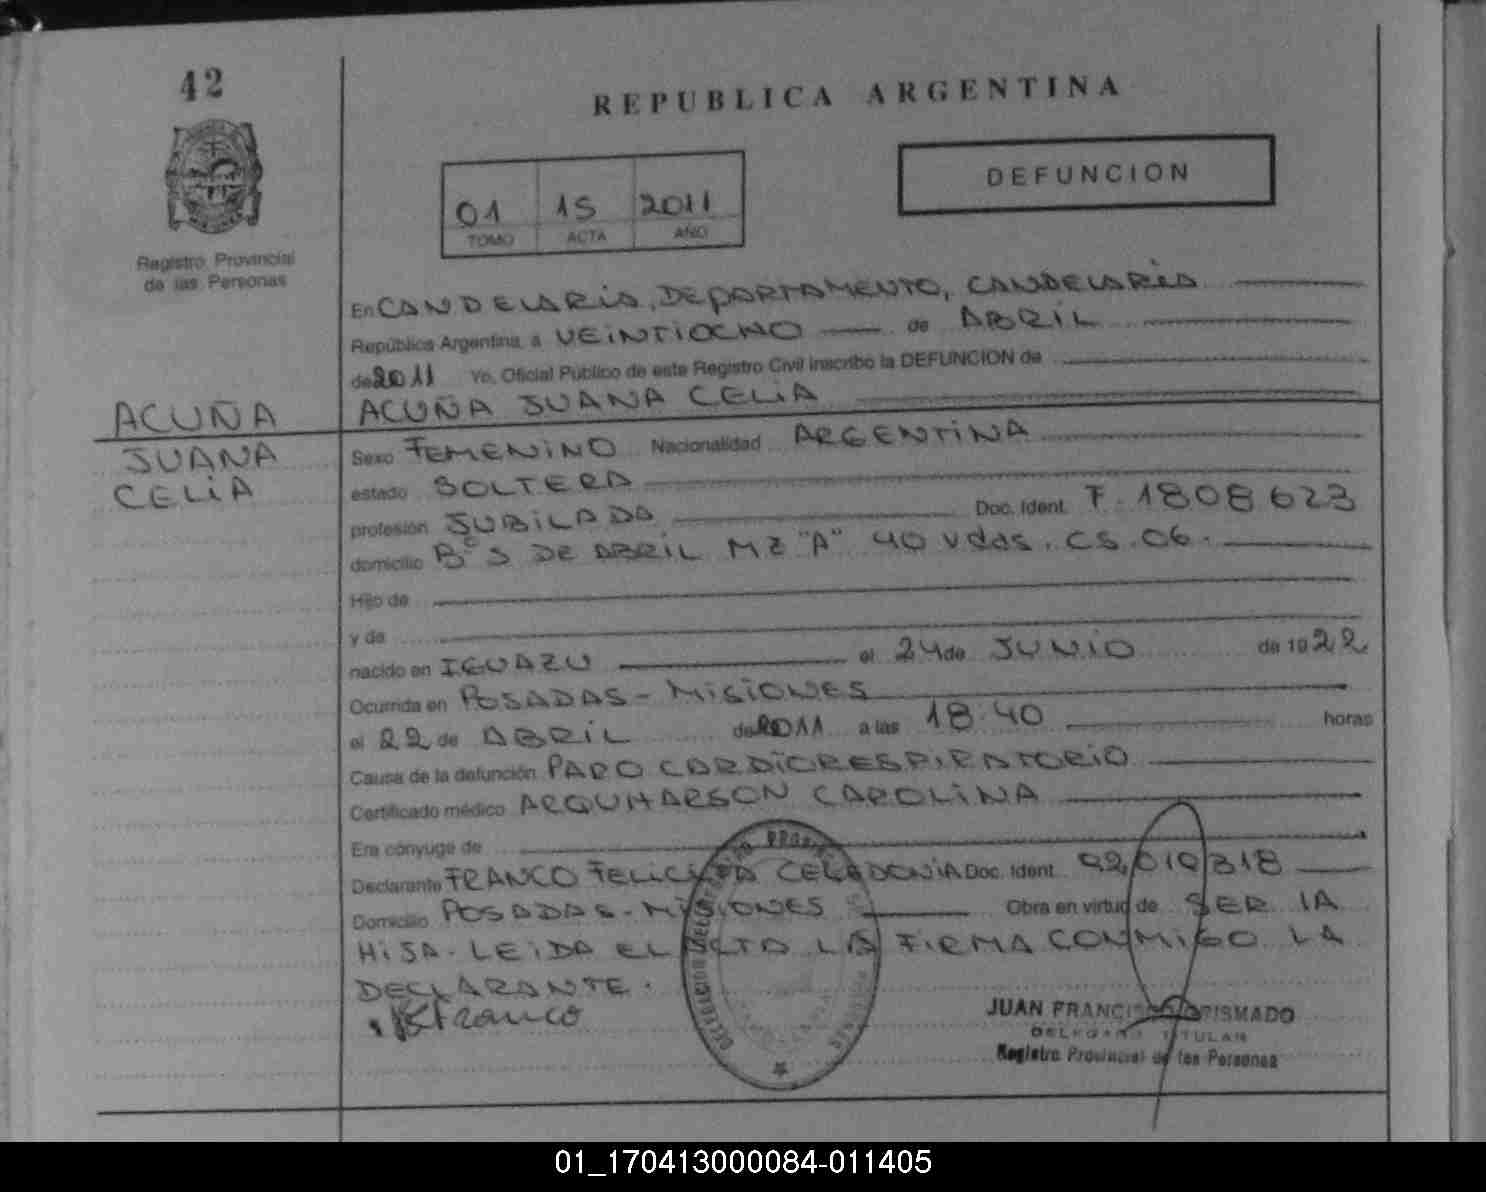 42
REPUBLICA ARGENTINA
DEFUNCION
01 15 2011
TOMO ACTA AÑO
Registro Provincial
de las Personas
En CANDELARIA, DEPARTAMENTO, CANDELARIA
República Argentina, a VEINTIOCHO de ABRIL
de 2011 Yo, Oficial Público de este Registro Civil inscribo la DEFUNCION de
ACUÑA ACUÑA JUANA CELIA
JUANA Sexo FEMENINO Nacionalidad ARGENTINA
CELIA estado SOLTERA
profesión JUBILADA Doc. Ident. F. 1808623
domicilio B° S DE ABRIL MZ "A" 40 vdas. CS. 06.
Hijo de
y de
nacido en IGUAZU el 24 de JUNIO de 1922
Ocurrida en POSADAS - MISIONES
el 22 de ABRIL de 2011 a las 18.40 horas
Causa de la defunción PARO CARDIORESPIRATORIO
Certificado médico ARQUHARSON CAROLINA
Era cónyuge de
Declarante FRANCO FELICITA CELEDONIA Doc. Ident. 92019318
Domicilio POSADAS - MISIONES Obra en virtud de SER LA
HIJA. LEIDA EL ACTA LA FIRMA CONMIGO LA
DECLARANTE.
Franco
JUAN FRANCISCO
TITULAR
Registro Provincial de las Personas
DELEGACION DEL REGISTRO
01_170413000084-011405